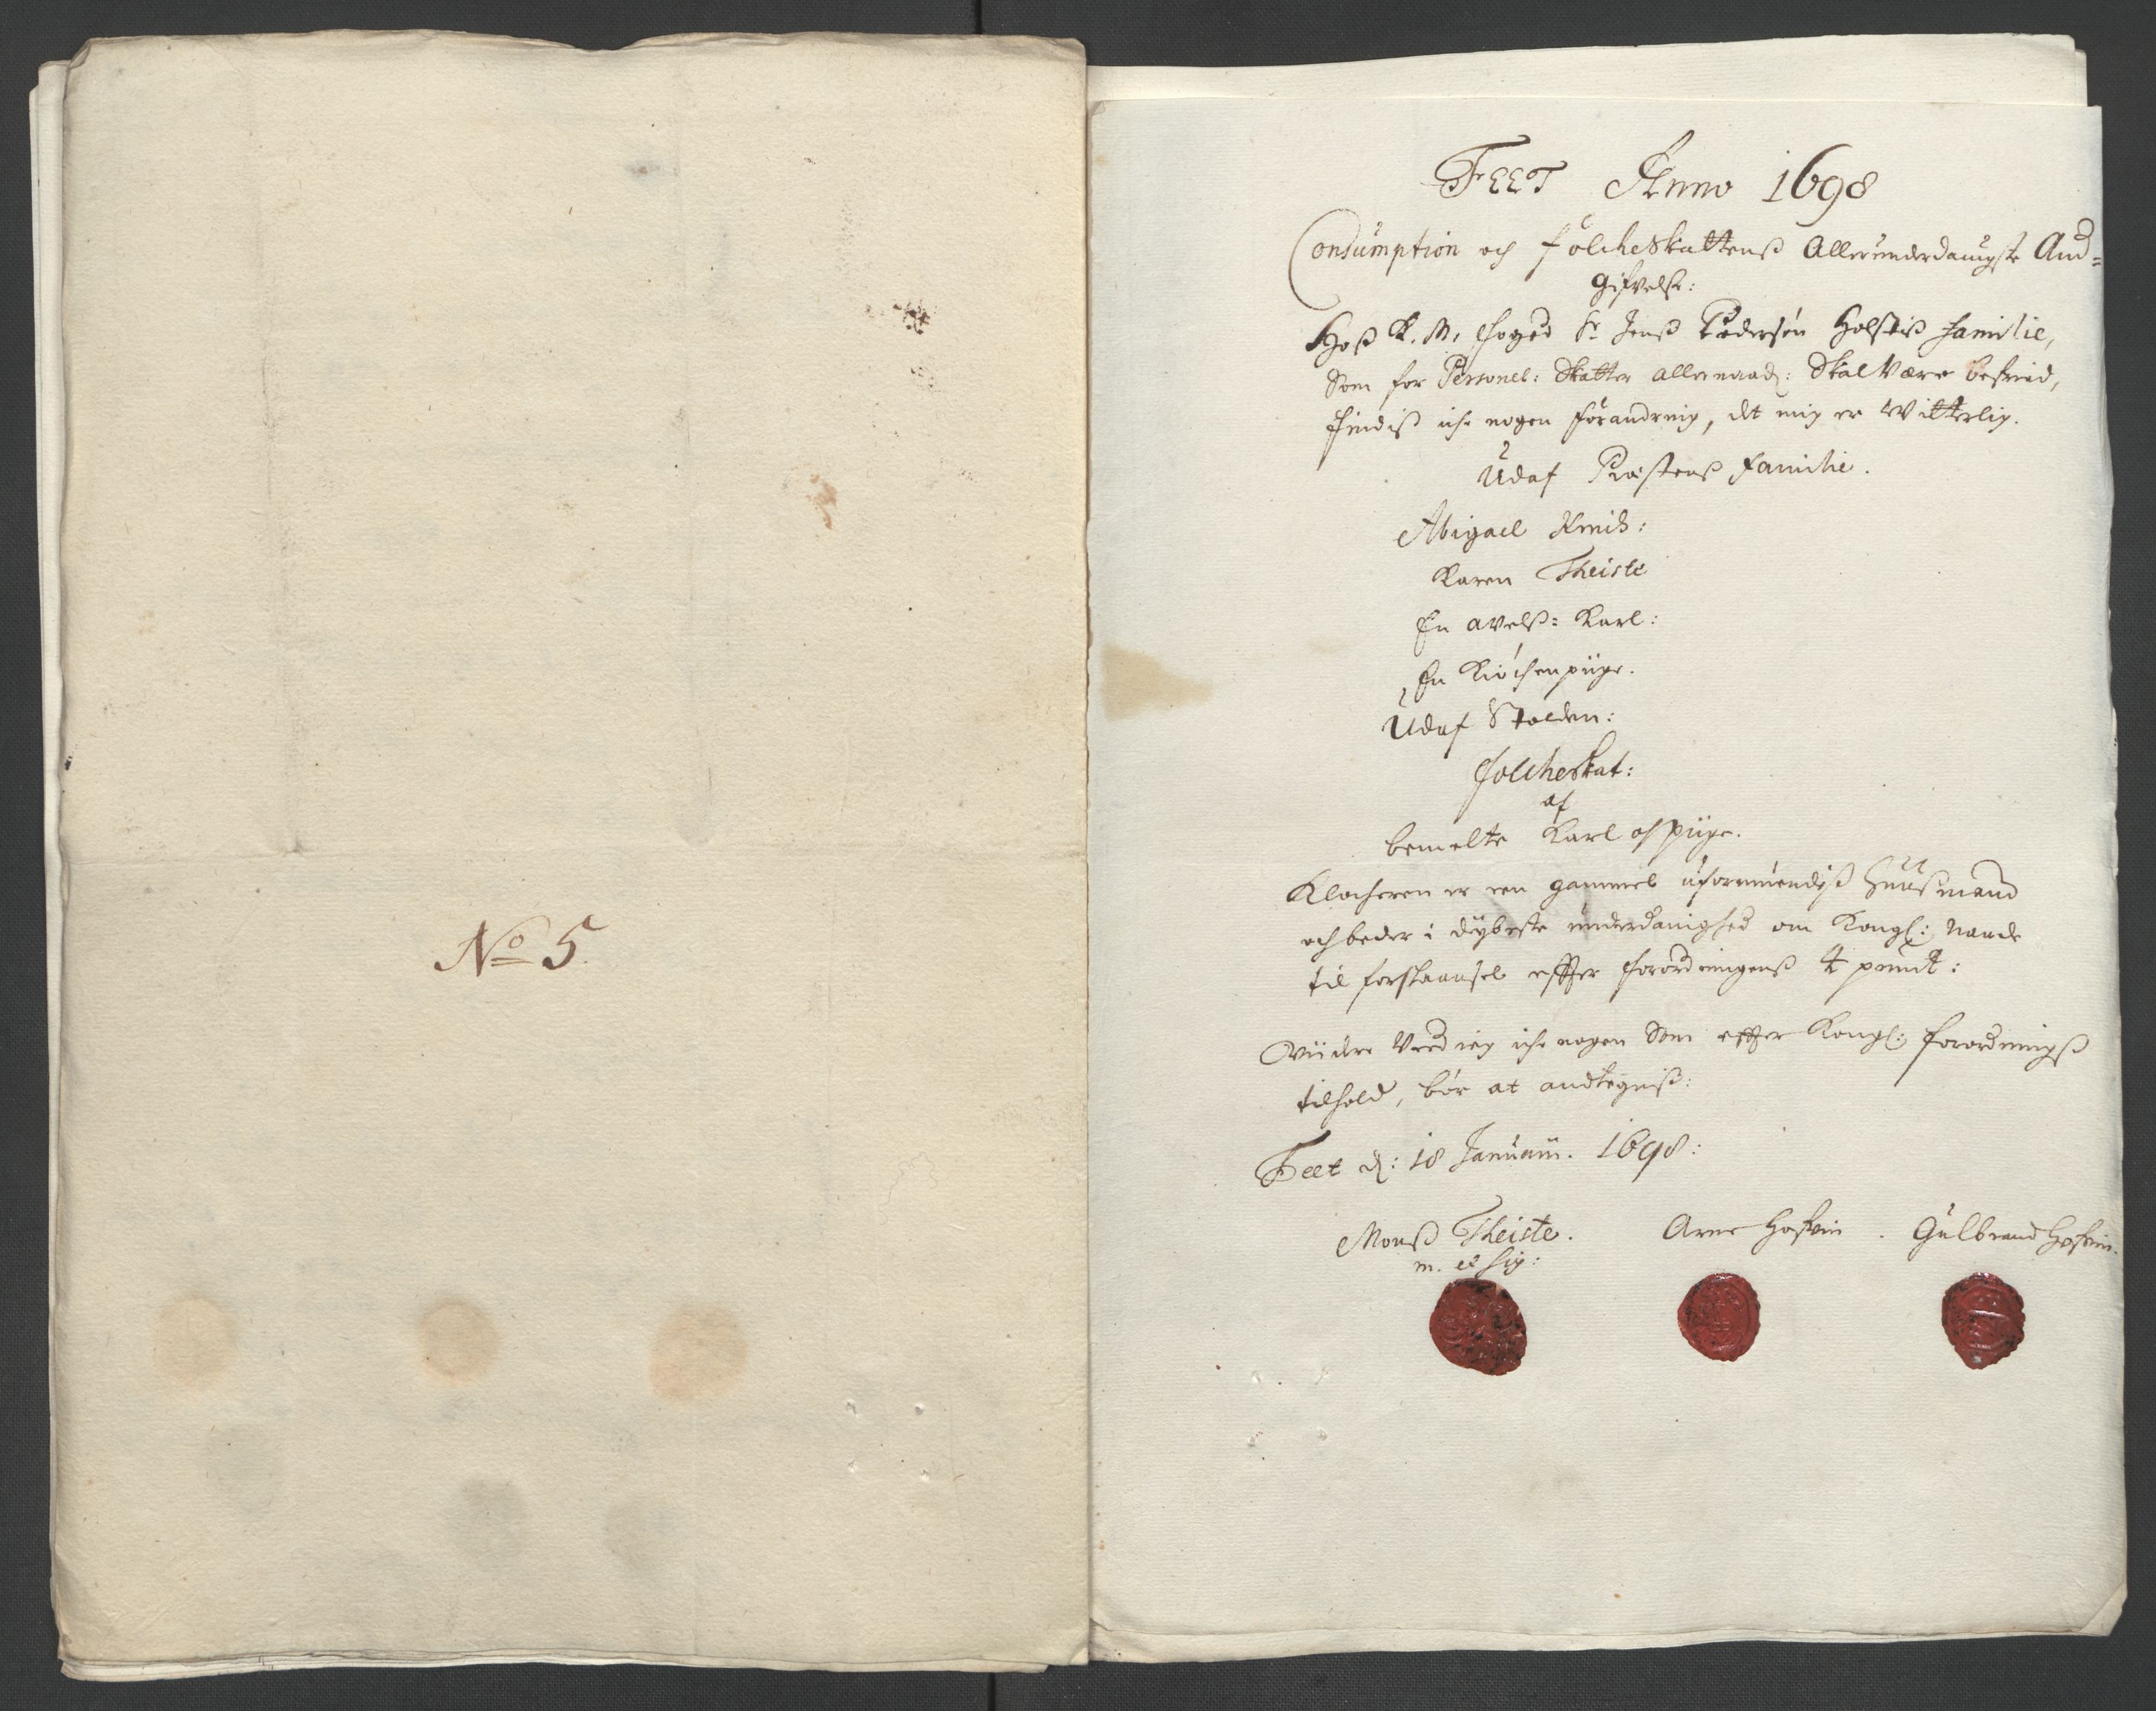 No 5.
FEET Anno 1698
Consumption och folcheskattenß Allerunderdanigste And=
gifvelse:
Hoß K. M. Foged Sr Jenß Pedersøn Holstiß familie,
Som for Personel: Skatter allernaad: Skal være befried,
findiß iche nogen forandring, det mig er Witterlig.
Udaf Præstenß familie.
Abigael
Karen Theiste
En avelß= Karl:
En Kiøchenpiige.
Udaf Stolden:
folcheskat:
af
bemelte Karl og Piige.
Klocheren er een gammel uformuendiß Huußmand
och beder i dybeste underdanighed om Kongl: Naade
til forskaansel effter forordningenß 4 punct:
Viidere Veed ieg iche nogen Som effter Kongl: forordningß
tilhold, bør at andtegniß:
Feet d: 18 Januarii. 1698:
Monß Theiste. Arne Hofvin. Gulbrand Hofvin.
m. et sig: